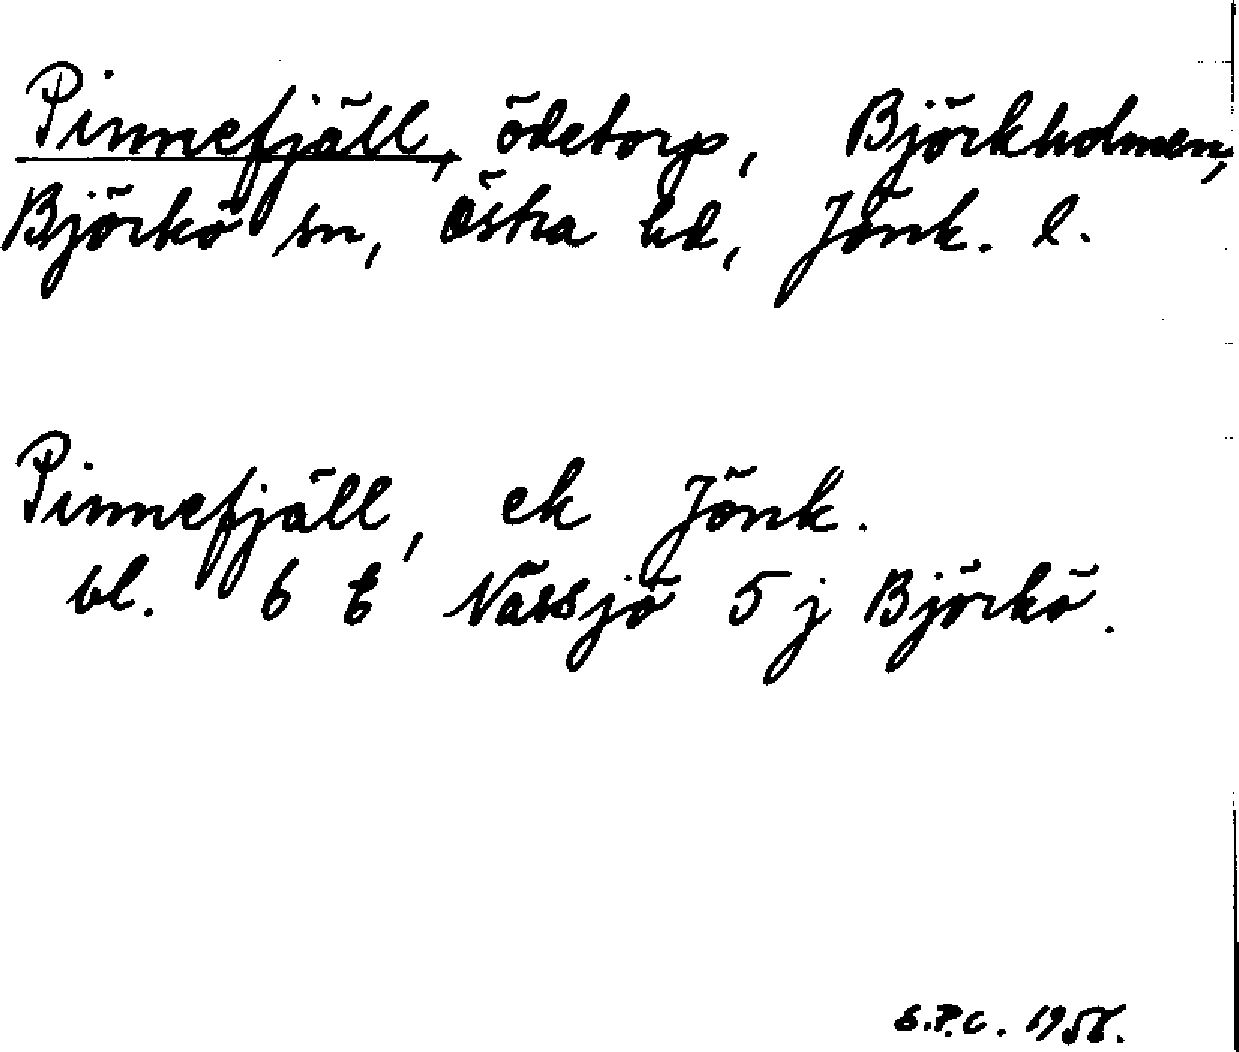 Pinnefjäll, ödetorp, Björkholmen,
Björkö sn, Östra hd, Jönk. l.
Pinnefjäll, ek Jönk.
bl. 6 E Nässjö 5 j Björkö.
S.P.C. 1956.